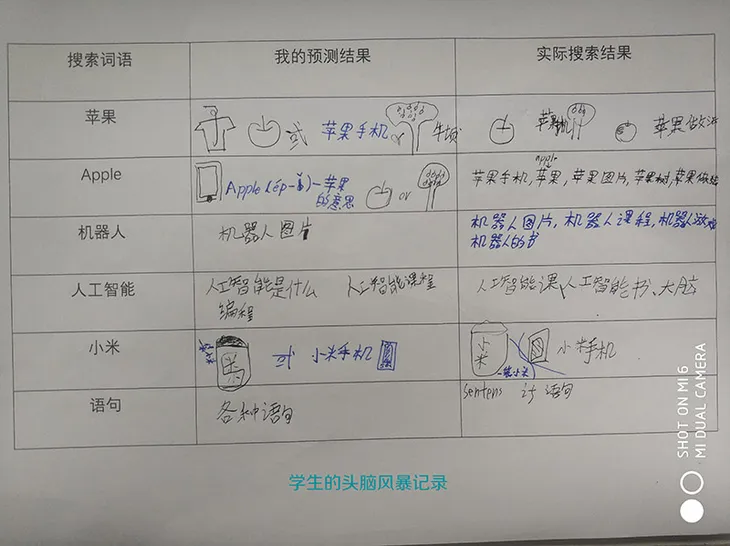 搜索词语 我的预测结果 实际搜索结果
苹果 或 苹果手机 牛顿 苹果手机 苹果做法
Apple Apple (ép-l)-苹果 的意思 or 苹果手机, apple 苹果, 苹果图片, 苹果树, 苹果做
机器人 机器人图片 机器人图片, 机器人课程, 机器人游戏
机器人的书
人工智能 人工智能是什么 人工智能课程 人工智能课, 人工智能书、大脑
编程
小米 或 小米手机 小米 小米手机
一袋小米
语句 各种语句 sentens 讨 语句
学生的头脑风暴记录
SHOT ON MI 6
MI DUAL CAMERA